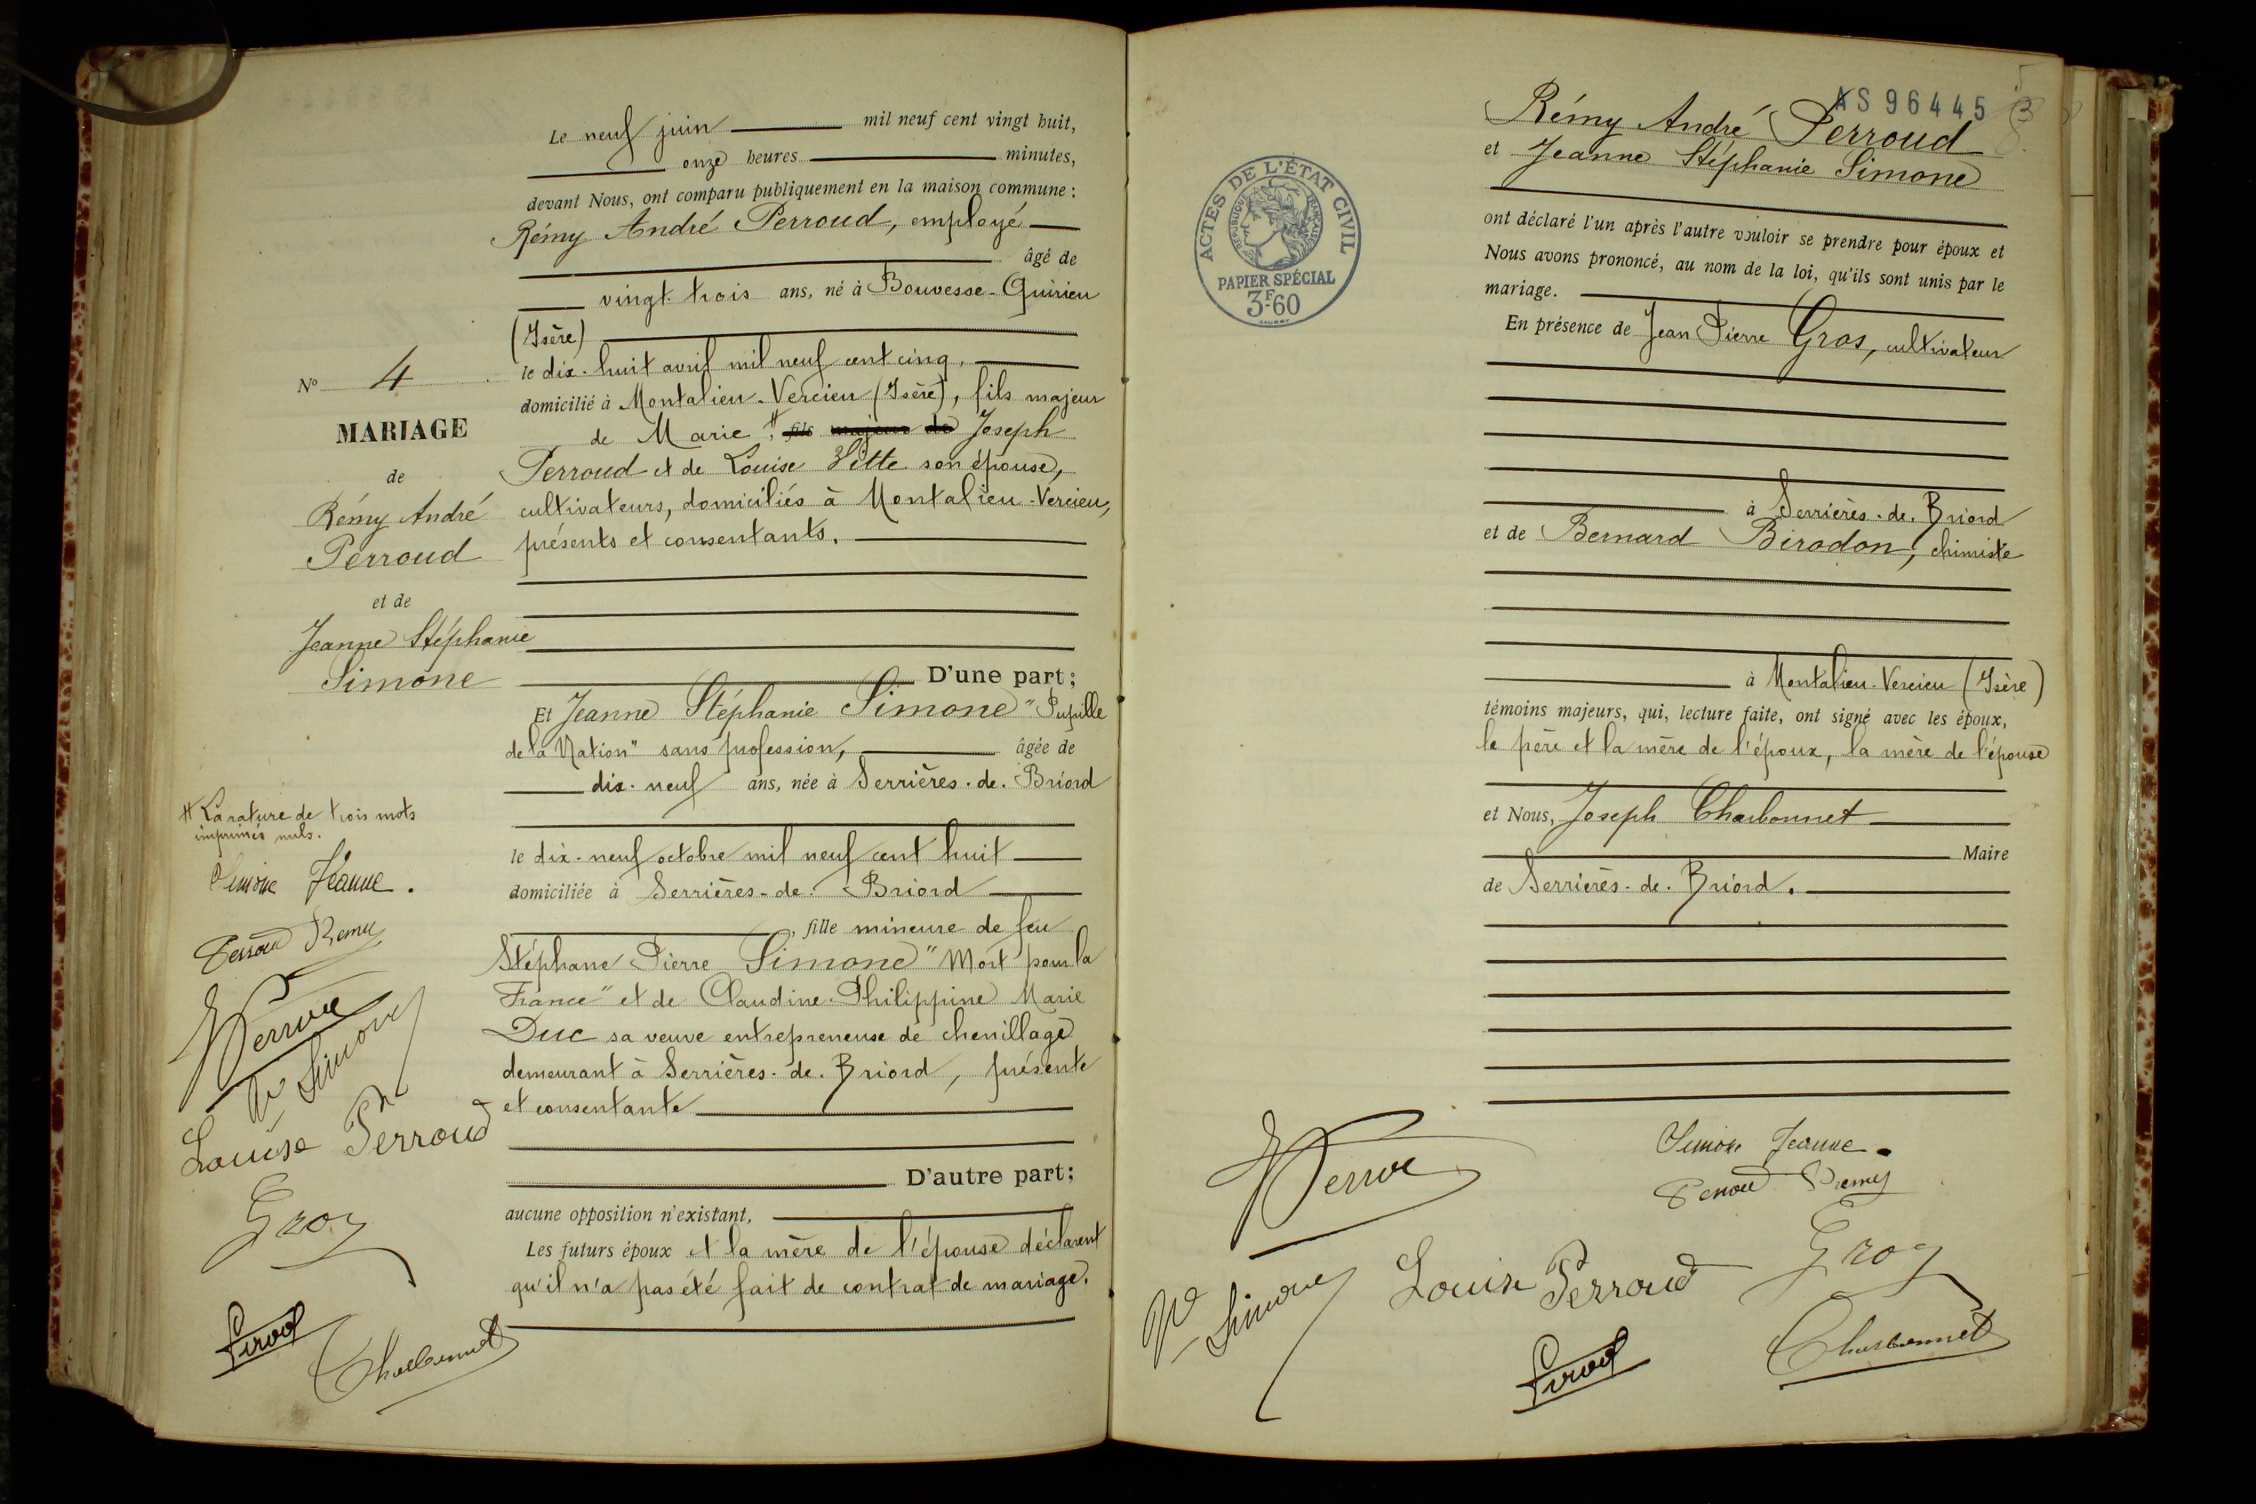 Le neuf juin mil neuf cent vingt huit,
onze heures minutes,
devant Nous, ont comparu publiquement en la maison commune :
Rémy André Perroud, employé
âgé de
vingt-trois ans, né à Bouvesse-Quirieu
(Isère)
le dix-huit avril mil neuf cent cinq,
domicilié à Montalieu-Vercieu (Isère), fils majeur
de Marie # fils majeur de Joseph
Perroud et de Louise Vitte son épouse,
cultivateurs, domiciliés à Montalieu-Vercieu,
présents et consentants.
D'une part ;
Et Jeanne Stéphanie Simone "Pupille
de la Nation" sans profession, âgée de
dix-neuf ans, née à Serrières-de-Briord
le dix-neuf octobre mil neuf cent huit
domiciliée à Serrières-de-Briord
, fille mineure de feu
Stéphane Pierre Simone "Mort pour la
France" et de Claudine Philippine Marie
Duc sa veuve entrepreneuse de chenillage
demeurant à Serrières-de-Briord, présente
et consentante
D'autre part ;
aucune opposition n'existant,
Les futurs époux et la mère de l'épouse déclarent
qu'il n'a pas été fait de contrat de mariage.
No 4
MARIAGE
de
Rémy André
Perroud
et de
Jeanne Stéphanie
Simone
# La rature de trois mots
imprimés nuls.
Simone Jeanne.
Perroud Remy
Ve Simone
Louise Perroud
Gros
Charbonnet
AS 96445
Rémy André Perroud
et Jeanne Stéphanie Simone
ACTES DE L'ÉTAT CIVIL
RÉPUBLIQUE FRANÇAISE
PAPIER SPÉCIAL
3F.60
ont déclaré l'un après l'autre vouloir se prendre pour époux et
Nous avons prononcé, au nom de la loi, qu'ils sont unis par le
mariage.
En présence de Jean Pierre Gros, cultivateur
à Serrières-de-Briord
et de Bernard Birodon, chimiste
à Montalieu-Vercieu (Isère)
témoins majeurs, qui, lecture faite, ont signé avec les époux,
le père et la mère de l'époux, la mère de l'épouse
et Nous, Joseph Charbonnet
Maire
de Serrières-de-Briord.
Simone Jeanne.
Perroud Remy
Ve Simone
Louise Perroud
Gros
Charbonnet